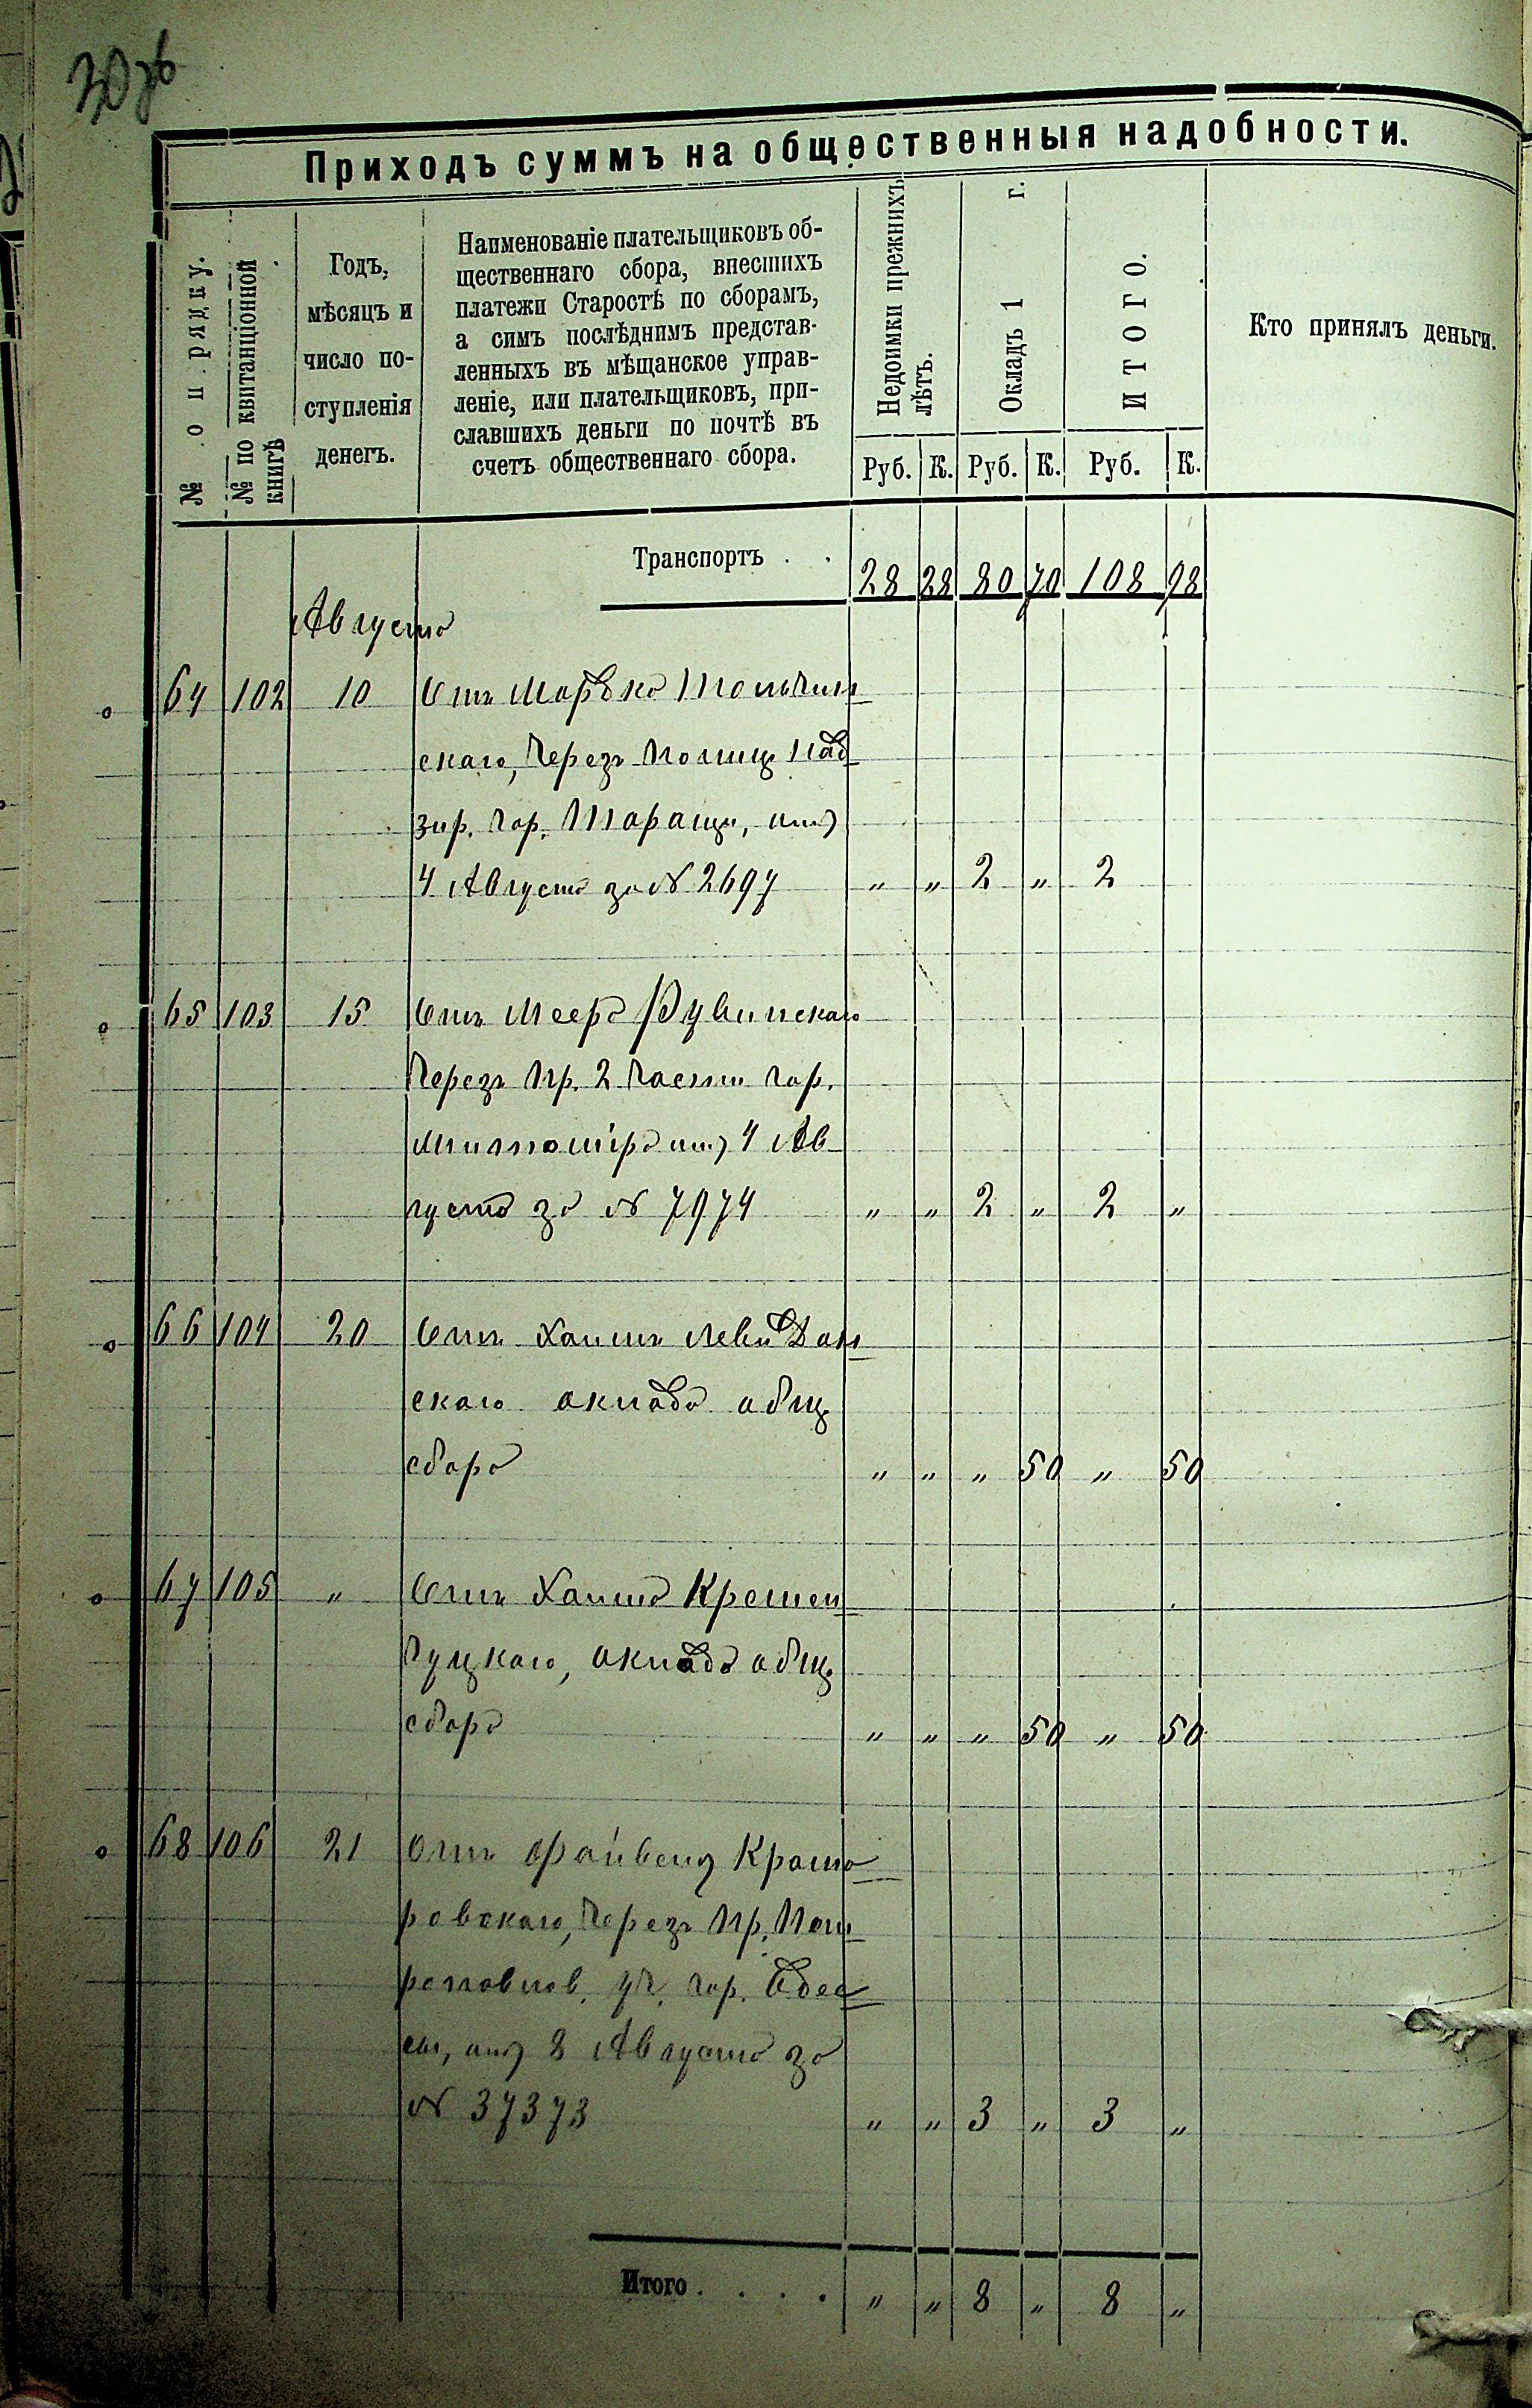 30 об
Приходъ суммъ на общественныя надобности.
№ по п рядку.
№ по квитанціонной книгѣ
Годъ, мѣсяцъ и число поступленія денегъ.
Наименованіе плательщиковъ об-
щественнаго сбора, внесшихъ
платежи Старостѣ по сборамъ,
а симъ послѣднимъ представ-
ленныхъ въ мѣщанское управ-
леніе, или плательщиковъ, при-
славшихъ деньги по почтѣ въ
счетъ общественнаго сбора.
Недоимки прежнихъ лѣтъ.
Окладъ 1 г.
ИТОГО.
Кто принялъ деньги.
Руб. К. Руб. К. Руб. К.
Транспортъ . . 28 28 80 70 108 98
Августа
64 102 10 Отъ Марька
скаго, Черезъ Полиц. Над
зир. гор. Таращи, отъ
4 Августа за № 2697 " " 2 " 2
65 103 15 Отъ Меера Рувинскаго
Черезъ Пр. 2 части гор.
Житомира отъ 4 Ав
густа за № 7974 " " 2 " 2 "
66 104 20 Отъ Хаима Левиддан
скаго оклада общ.
сбора " " " 50 " 50
67 105 " Отъ Хаима Кремен
чуцкаго, оклада общ.
сбора " " " 50 " 50
68 106 21 Отъ Файвеля Крама
ровскаго, Черезъ Пр. Пет
ропавлов. уч. гор. Одес
сы, отъ 8 Августа за
№ 37373 " " 3 " 3 "
Итого . . . . " " 8 " 8 "